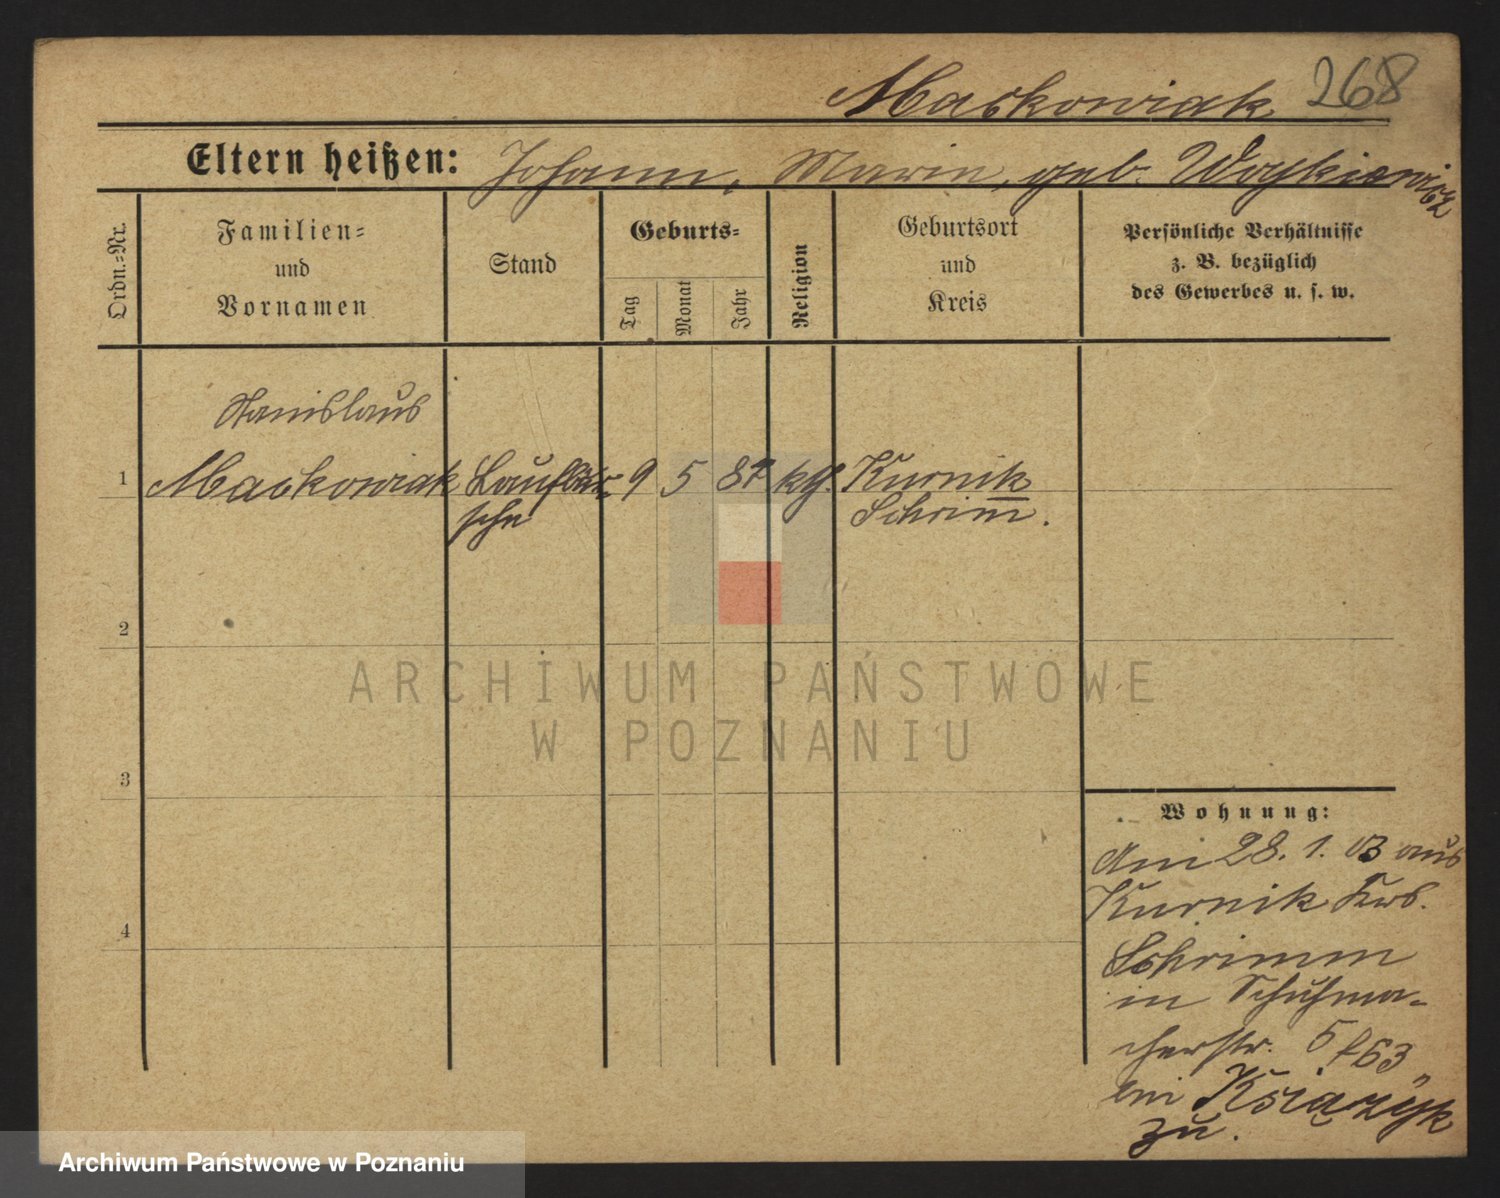 Mackowiak 268
Eltern heißen: Johann, Marie, geb. Woykiewicz
Ordn.-Nr.
Familien-
und
Vornamen
Stand
Geburts-
Tag
Monat
Jahr
Religion
Geburtsort
und
Kreis
Persönliche Verhältnisse
z. B. bezüglich
des Gewerbes u. s. w.
Stanislaus
1 Mackowiak Laufbur- 9 5 87 kth. Kurnik
sche Schrim̅.
2
3
4
ARCHIWUM PAŃSTWOWE
W POZNANIU
Wohnung:
Am 28. 1. 03 aus
Kurnik Krs.
Schrimm
in Schuhma-
cherstr. 5
bei Książyk
zu.
Archiwum Państwowe w Poznaniu